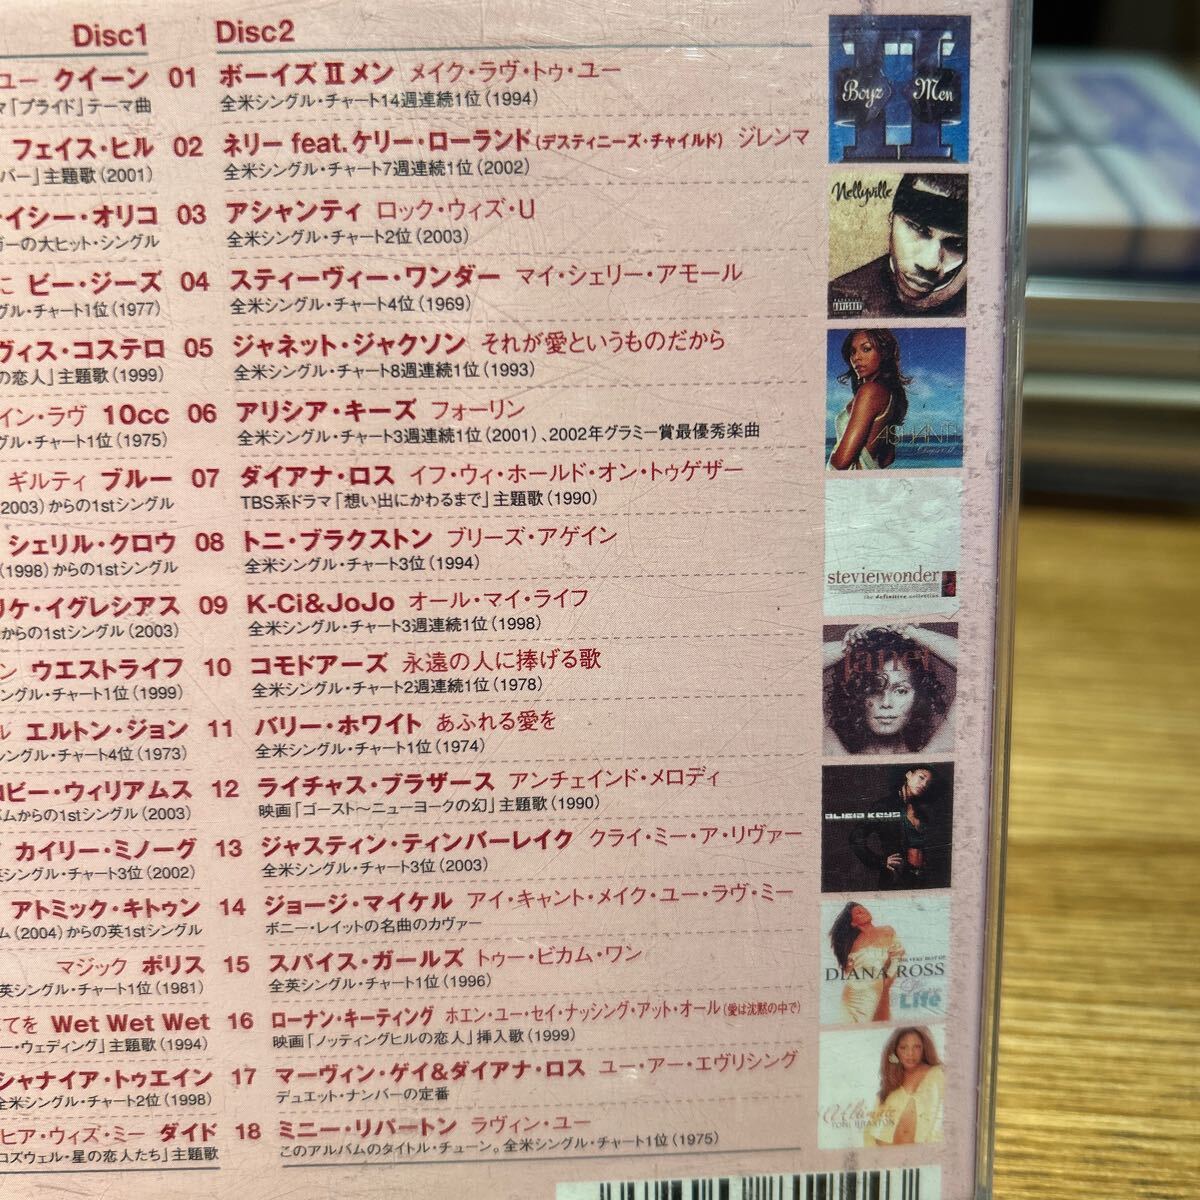 Disc1 Disc2
ユー クイーン 01 ボーイズⅡメン メイク・ラヴ・トゥ・ユー
マ「プライド」テーマ曲 全米シングル・チャート14週連続1位(1994)
フェイス・ヒル 02 ネリー feat.ケリー・ローランド(デスティニーズ・チャイルド) ジレンマ
バー」主題歌(2001) 全米シングル・チャート7週連続1位(2002)
イシー・オリコ 03 アシャンティ ロック・ウィズ・U
ガーの大ヒット・シングル 全米シングル・チャート2位(2003)
に ビー・ジーズ 04 スティーヴィー・ワンダー マイ・シェリー・アモール
グル・チャート1位(1977) 全米シングル・チャート4位(1969)
ヴィス・コステロ 05 ジャネット・ジャクソン それが愛というものだから
の恋人」主題歌(1999) 全米シングル・チャート8週連続1位(1993)
イン・ラヴ 10cc 06 アリシア・キーズ フォーリン
グル・チャート1位(1975) 全米シングル・チャート3週連続1位(2001)、2002年グラミー賞最優秀楽曲
ギルティ ブルー 07 ダイアナ・ロス イフ・ウィ・ホールド・オン・トゥゲザー
2003)からの1stシングル TBS系ドラマ「想い出にかわるまで」主題歌(1990)
シェリル・クロウ 08 トニ・ブラクストン ブリーズ・アゲイン
(1998)からの1stシングル 全米シングル・チャート3位(1994)
リケ・イグレシアス 09 K-Ci&JoJo オール・マイ・ライフ
からの1stシングル(2003) 全米シングル・チャート3週連続1位(1998)
ン ウエストライフ 10 コモドアーズ 永遠の人に捧げる歌
シングル・チャート1位(1999) 全米シングル・チャート2週連続1位(1978)
ル エルトン・ジョン 11 バリー・ホワイト あふれる愛を
シングル・チャート4位(1973) 全米シングル・チャート1位(1974)
ロビー・ウィリアムス 12 ライチャス・ブラザース アンチェインド・メロディ
バムからの1stシングル(2003) 映画「ゴースト〜ニューヨークの幻」主題歌(1990)
カイリー・ミノーグ 13 ジャスティン・ティンバーレイク クライ・ミー・ア・リヴァー
英シングル・チャート3位(2002) 全米シングル・チャート3位(2003)
アトミック・キトゥン 14 ジョージ・マイケル アイ・キャント・メイク・ユー・ラヴ・ミー
ム(2004)からの英1stシングル ボニー・レイットの名曲のカヴァー
マジック ポリス 15 スパイス・ガールズ トゥー・ビカム・ワン
英シングル・チャート1位(1981) 全英シングル・チャート1位(1996)
てを Wet Wet Wet 16 ローナン・キーティング ホエン・ユー・セイ・ナッシング・アット・オール(愛は沈黙の中で)
ー・ウェディング」主題歌(1994) 映画「ノッティングヒルの恋人」挿入歌(1999)
シャナイア・トゥエイン 17 マーヴィン・ゲイ&ダイアナ・ロス ユー・アー・エヴリシング
全米シングル・チャート2位(1998) デュエット・ナンバーの定番
ヒア・ウィズ・ミー ダイド 18 ミニー・リパートン ラヴィン・ユー
ロズウェル・星の恋人たち」主題歌 このアルバムのタイトル・チューン。全米シングル・チャート1位(1975)
Boyz II Men
Nellyville
ASHANTI
steviewonder
the definitive collection
janet
ALICIA KEYS
THE VERY BEST OF
DIANA ROSS
Love
Life
Ultimate
TONI BRAXTON